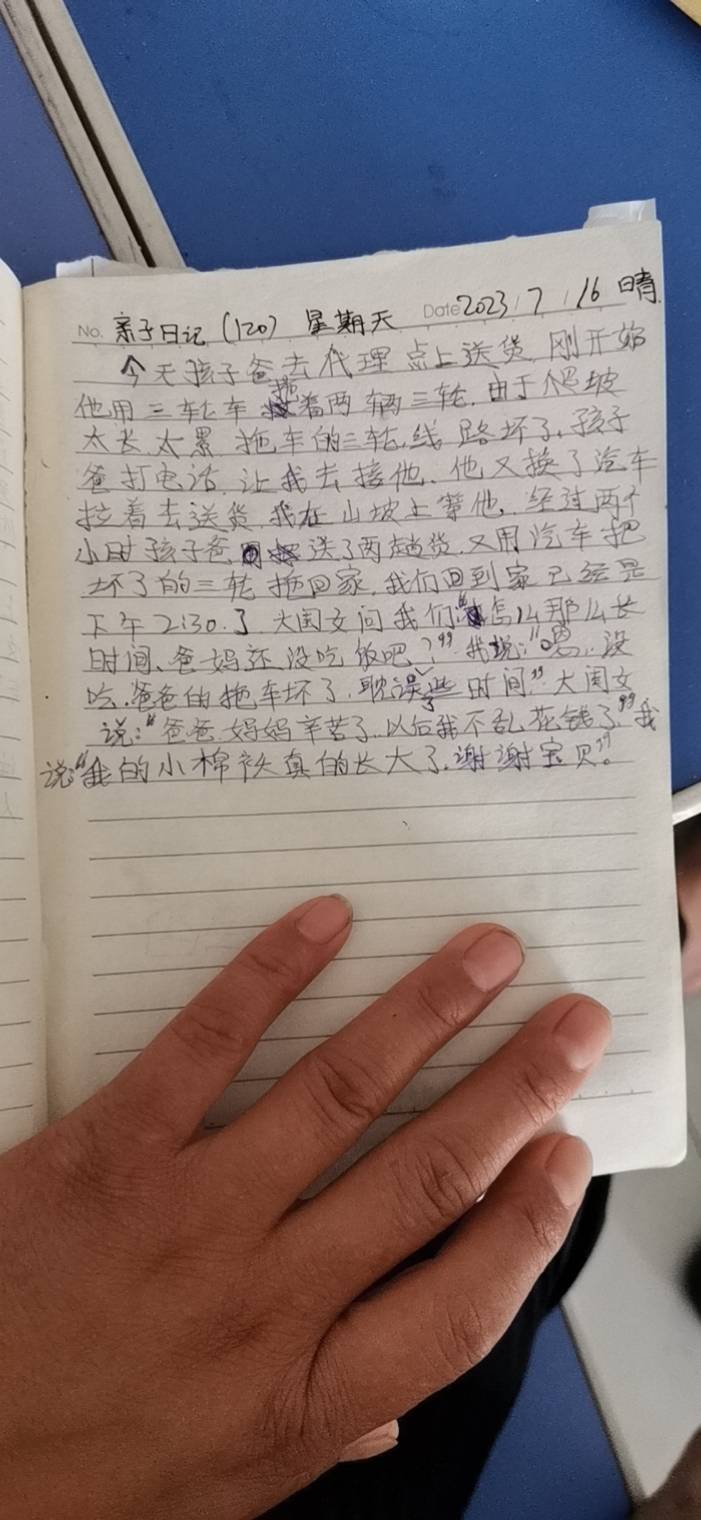 No. 亲子日记（120） 星期天 Date 2023 / 7 / 16 晴.
今天孩子爸去代理点上送货,刚开始
他用三轮车拖着两辆三轮.由于爬坡
太长,太累,拖车的三轮,线路坏了,孩子
爸打电话,让我去接他、他又换了汽车
拉着去送货,我在山坡上等他,经过两个
小时孩子爸送了两趟货,又用汽车把
坏了的三轮拖回家.我们回到家已经是
下午2:30.了,大闺女问我们:“怎么那么长
时间、爸妈还没吃饭吧？”我说:“嗯.没
吃.爸爸的拖车坏了,耽误了些时间”大闺女
说:“爸爸,妈妈辛苦了,以后我不乱花钱了”我
说:“我的小棉袄真的长大了,谢谢宝贝”。